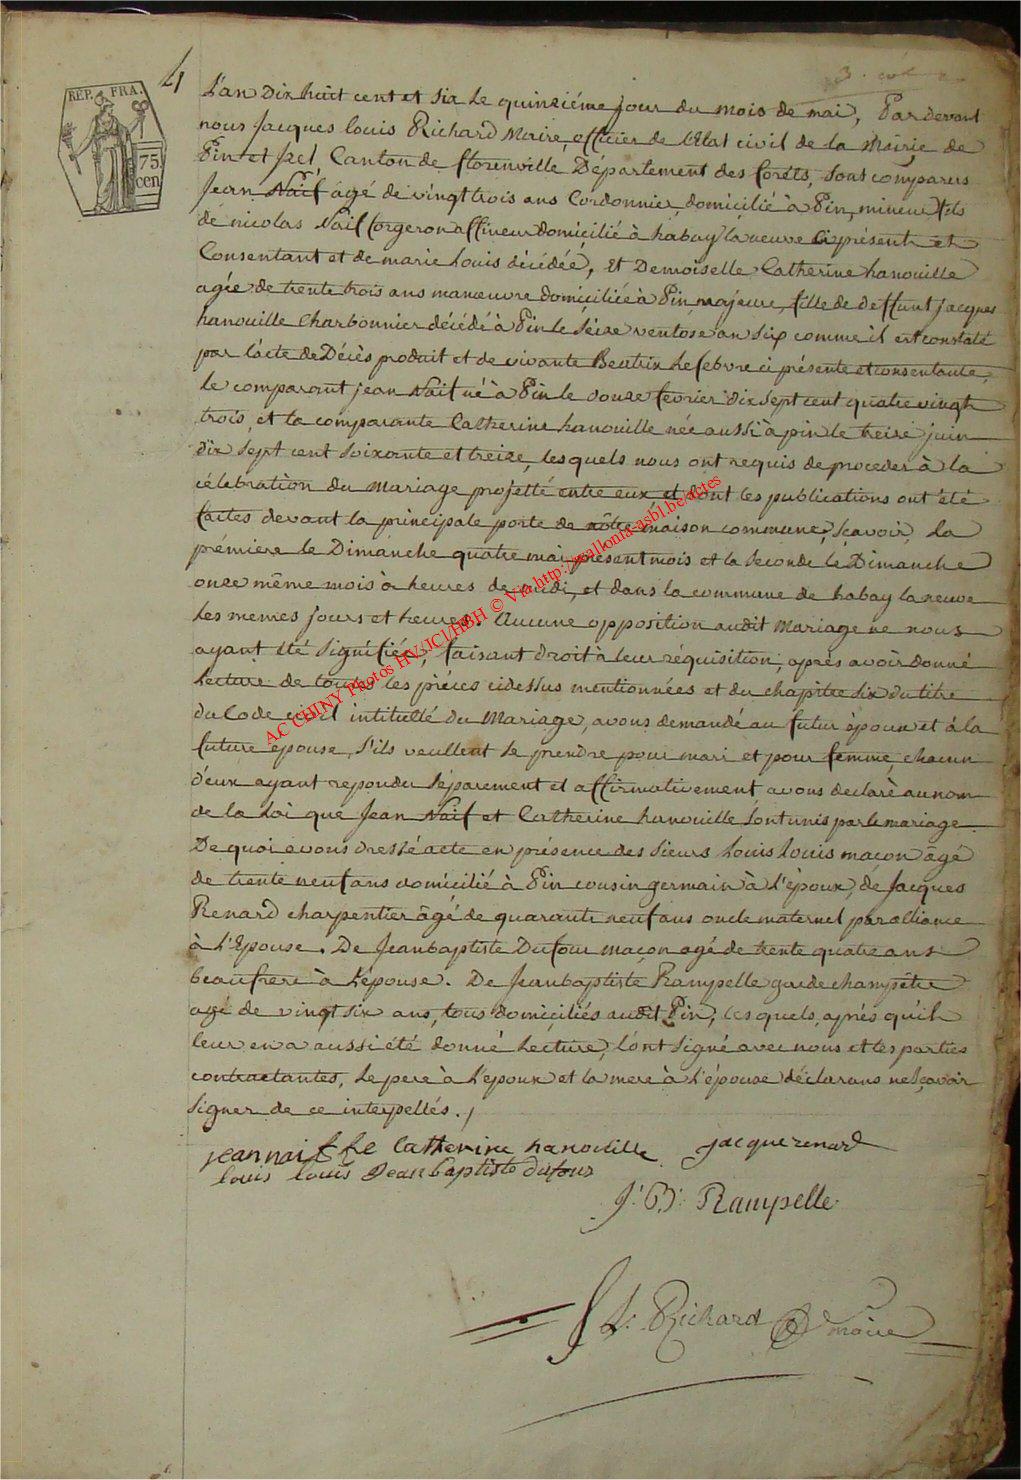 3.
4
REP. FRA.
75
cen
L'an Dix huit cent et six le quinzième jour du mois de mai, Pardevant
nous Jacques Louis Richard Maire, officier de l'Etat civil de la Mairie de
Pin et Izel, Canton de florenville Département des forêts, sont comparus
Jean Naif âgé de vingt trois ans Cordonnier, domicilié à Pin, mineur fils
de nicolas Naif forgeron affineur domicilié à habay la neuve ci présent et
Consentant et de marie Louis décédée, Et Demoiselle Catherine hanouille
agée de trente trois ans manœuvre domiciliée à Pin, majeure, fille de deffunt Jacques
hanouille Charbonnier décédé à Pin le seize ventose an six comme il est constaté
par l'acte de Décès produit et de vivante Beatrix Lefebvre ci présente et consentante,
le comparant jean Naif né à Pin le douze fevrier dix sept cent quatre vingt
trois, et la comparante Catherine hanouille née aussi à pin le treize juin
dix sept cent soixante et treize, lesquels nous ont requis de proceder à la
célebration du Mariage projetté entre eux, et dont les publications ont été
faites devant la principale porte de nôtre maison commune, sçavoir, la
première le Dimanche quatre mai présent mois et la seconde le Dimanche
onze même mois à heures de midi, et dans la commune de habay la neuve
les memes jours et heures. Aucune opposition audit Mariage ne nous
ayant été signifiée, faisant droit à leur réquisition, après avoir donné
lecture de toutes les pièces cidessus mentionnées et du chapitre six du titre
du Code civil intitulté du Mariage, avons demandé au futur époux et à la
future epouse, s'ils veullent se prendre pour mari et pour femme, chacun
d'eux ayant repondu séparement et affirmativement, avons declaré au nom
de la Loi que Jean Naif et Catherine hanouille sont unis par le mariage.
De quoi avons dressé acte en présence des Sieurs Louis Louis maçon âgé
de trente neuf ans domicilié à Pin cousin germain à l'époux, de Jacques
Renard charpentier âgé de quarante neuf ans oncle maternel par alliance
à l'Epouse. De Jeanbaptiste Dufour maçon agé de trente quatre ans
beaufrere à l'épouse. De Jeanbaptiste Rampelle garde champêtre
agé de vingt six ans, tous domiciliés audit Pin, lesquels, après qu'il
leur en a aussi été donné lecture, l'ont signé avec nous et les parties
contractantes, le pere à l'époux et la mere à l'épouse déclarans ne sçavoir
signer de ce interpellés.
jean naif Catherine hanouille jacque renard
louis louis Jean baptiste dufour
J: B: Rampelle
J L: Richard maire
AC CHINY Photos HV/JCI/HBH © Via http://walloma-asbl.be/actes